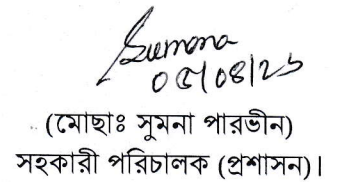 Sumona
০৫/০৪/২৬
(মোছাঃ সুমনা পারভীন)
সহকারী পরিচালক (প্রশাসন)।